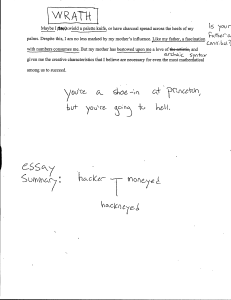 WRATH
Maybe I don't wield a palette knife, or have charcoal spread across the heels of my
palms. Despite this, I am no less marked by my mother's influence. Like my father, a fascination
with numbers consumes me. But my mother has bestowed upon me a love of the artistic, and
given me the creative characteristics that I believe are necessary for even the most mathematical
among us to succeed.
Is your
Father a
cannibal?
archaic syntax
you're a shoe-in at princeton,
but you're going to hell.
essay
summary:
hacker
moneyed
hackneyed